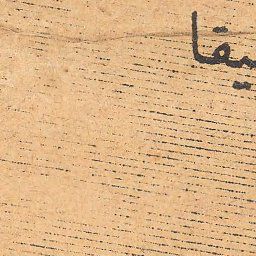 يقا